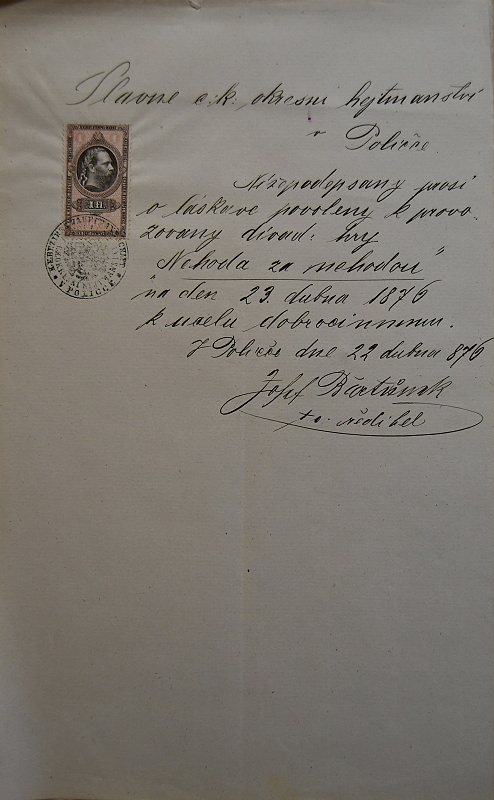 Slavné c. k. okresní hejtmanství
v Poličce.
Nížepodepsaný prosí
o láskavé povolený k provo
zovaný divad: hry
Nehoda za nehodou"
na den 23. dubna 1876
k účelu dobročinnému.
V Poličce dne 22 dubna 876
Josef Bartůněk
ředitel
V POLIČCE